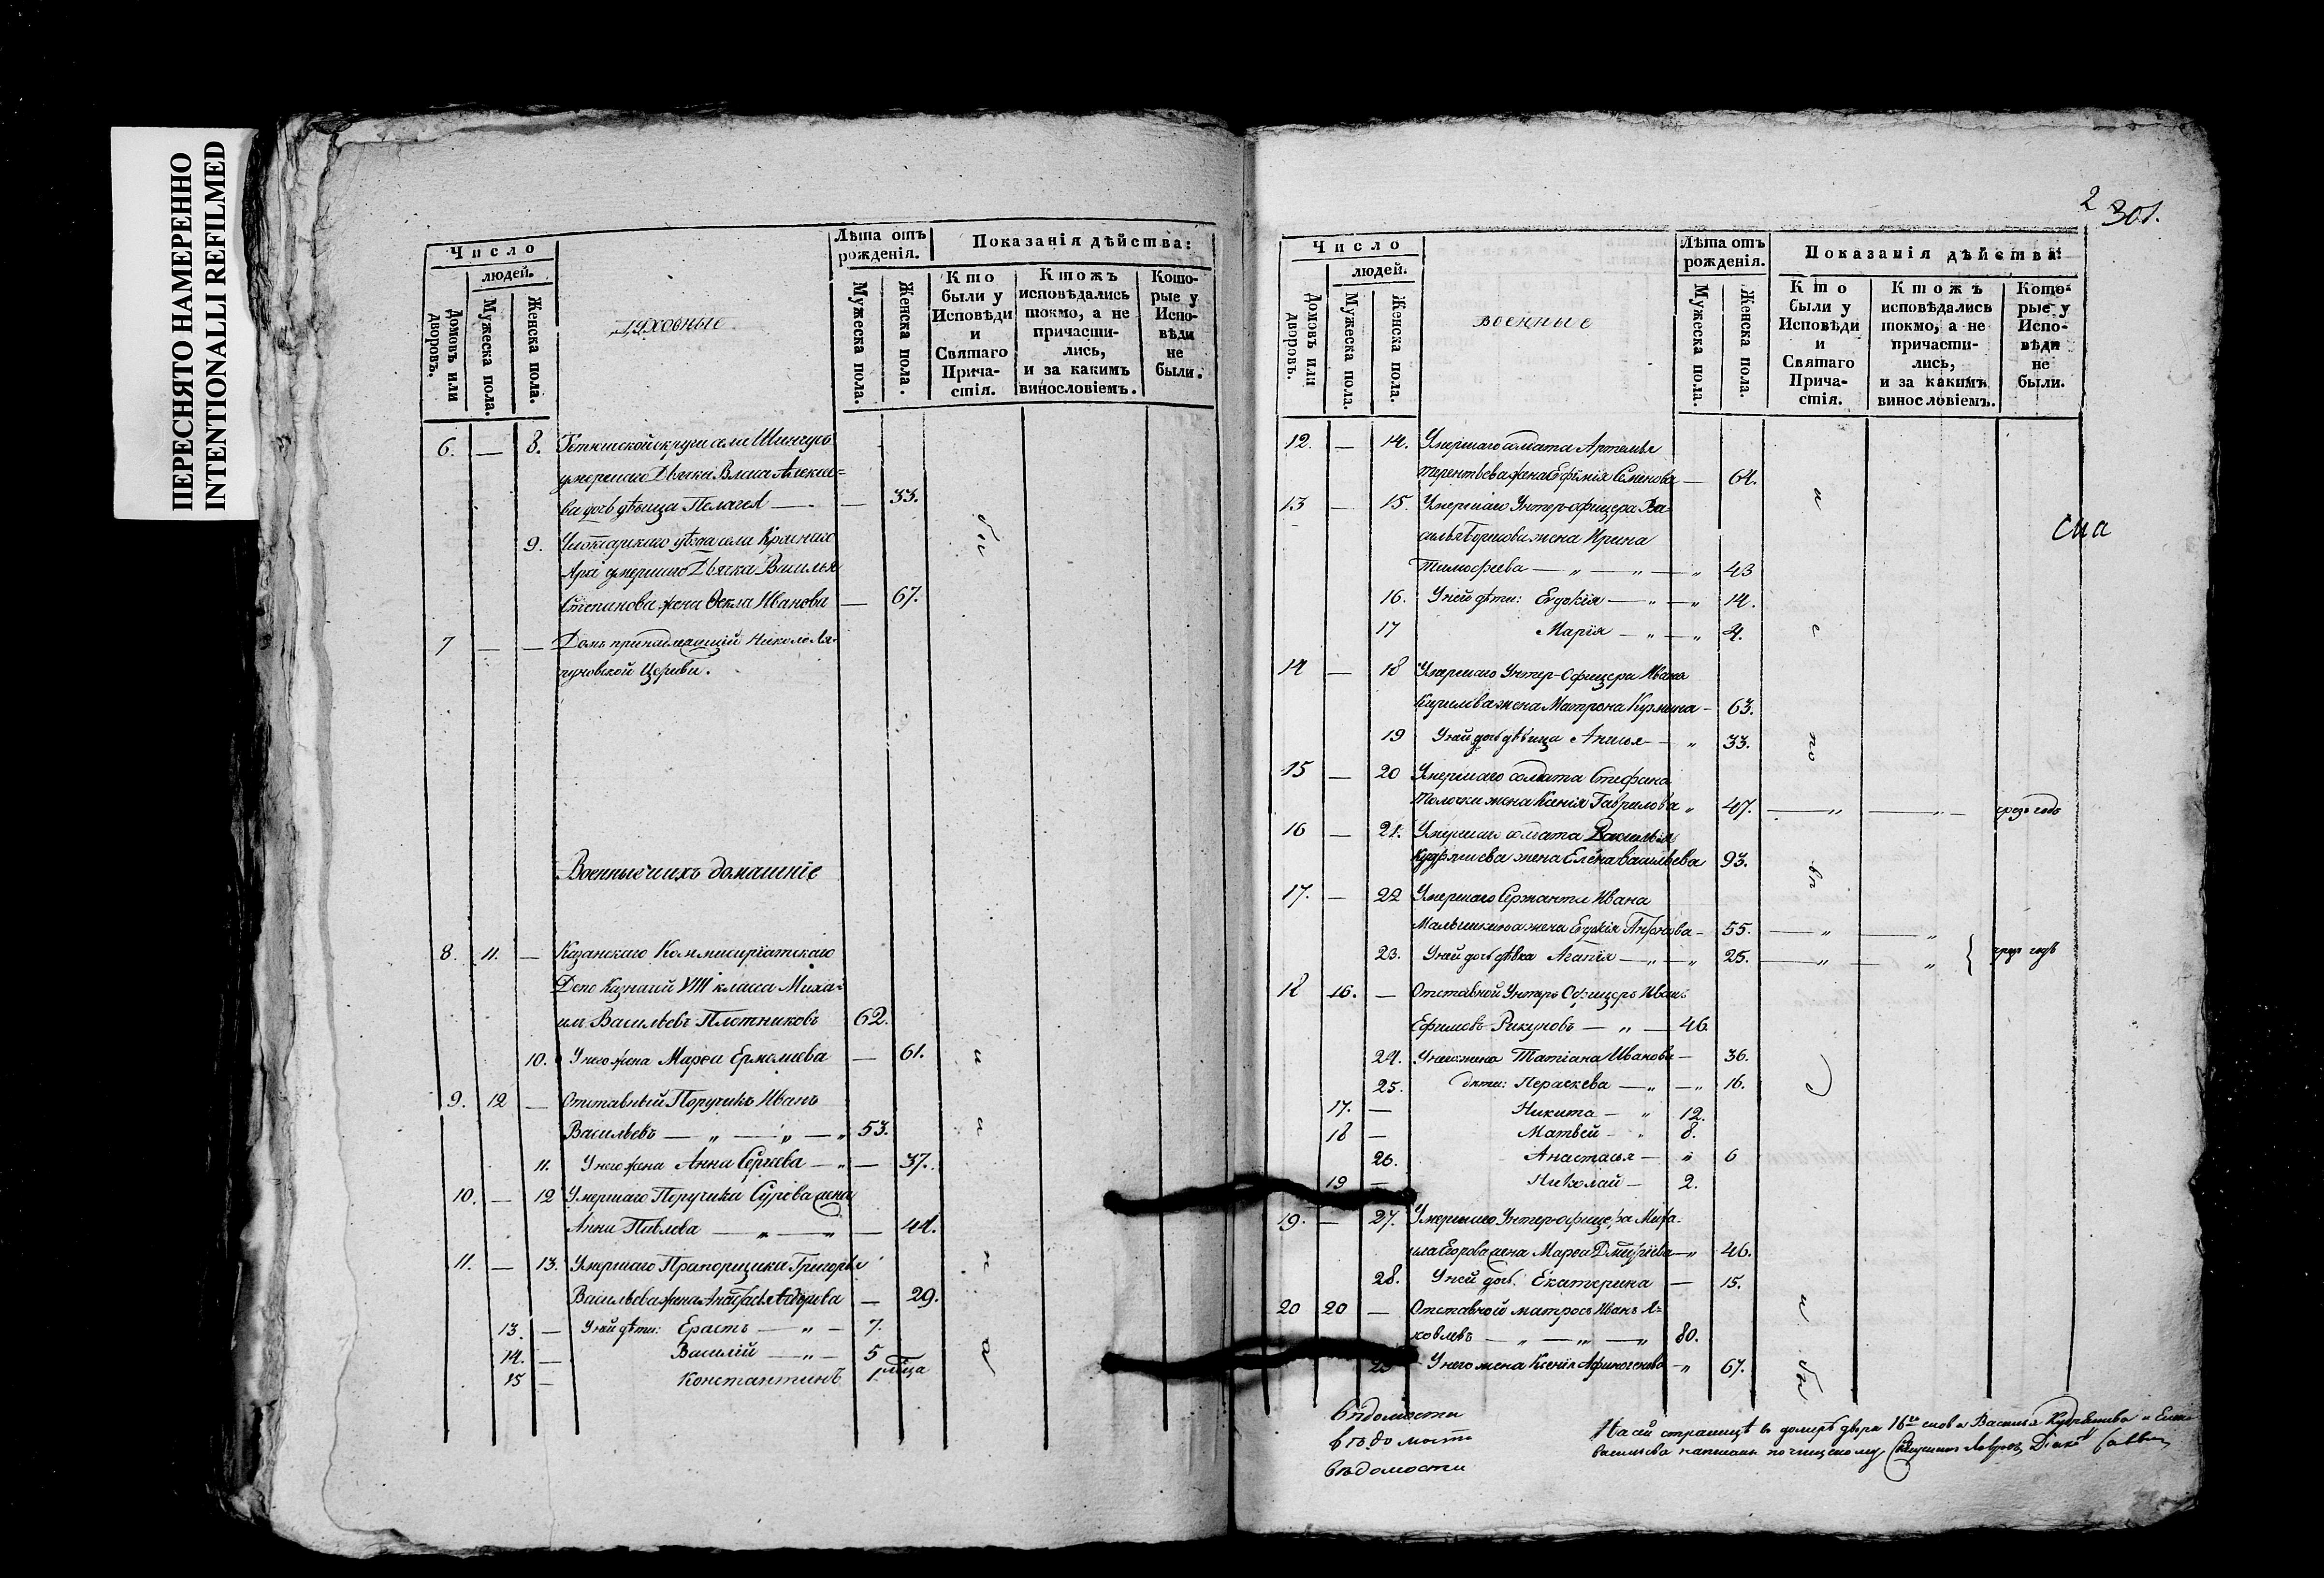 ПЕРЕСНЯТО НАМЕРЕННО
INTENTIONALLI REFILMED
Число
людей.
Домовъ или дворовъ.
Мужеска пола.
Женска пола.
духовные
Лѣта отъ рожденія.
Мужеска пола.
Женска пола.
Показанія дѣйства:
Кто были у Исповѣди и Святаго Причастія.
Ктожъ исповѣдались токмо, а не причастились, и за какимъ винословіемъ.
Которые у Исповѣди не были.
6. — 8. округи села
умершаго Дьячка Алексѣе=
ва дочь дѣвица Пелагея — — 33.
9. уѣзда села Красныхъ
умершаго Дьячка Василья
Степанова жена Ѳекла Иванова — 67.
7 — — Домъ принадлежащій Николо Ля-
пуновской Церкви.
Военные и ихъ домашніе
8. 11. — Казанскаго Коммисаріатскаго
Депо Казначей VIII класса Миха-
илъ Васильевъ Плотниковъ 62.
10. У него жена Марѳа Ермолаева — 61.
9. 12 — Отставный Поручикъ Иванъ
Васильевъ — „ — „ — „ 53.
11. У него жена Анна Сергѣева — „ — 37.
10. — 12 Умершаго Поручика жена
Анна Павлова — „ — „ — 44.
11. — 13. Умершаго Прапорщика Григорья
Васильева жена — 29.
13. — У ней дѣти: Ерастъ — „ — 7.
14. — Василій — „ — 5
15 — Константинъ 1 мѣсяца
2
301.
Число
людей.
Домовъ или дворовъ.
Мужеска пола.
Женска пола.
военные
Лѣта отъ рожденія.
Мужеска пола.
Женска пола.
Показанія дѣйства:
Кто были у Исповѣди и Святаго Причастія.
Ктожъ исповѣдались токмо, а не причастились, и за какимъ винословіемъ.
Которые у Исповѣди не были.
12. — 14. Умершаго солдата Артемья
Терентьева жена Ефимія Семенова — 64.
13 — 15. Умершаго Унтер-офицера Ва-
силья жена Ирина
Тимофеева — „ — „ — „ 43
16. У ней дѣти: Евдокія — „ — „ 14.
17 Марія — „ — „ 4.
14 — 18 Умершаго Унтер-Офицера Ивана
Кирилова жена Матрона Кузмина — 63.
19 У ней дочь дѣвица Анисья — „ 33.
15 — 20 Умершаго солдата Стефана
Толочки жена Ксенія Гаврилова „ 47. — „ — „ — чрезъ годъ
16 — 21. Умершаго солдата Василья
Кудряшева жена Елена Васильева 93.
17. — 22 Умершаго Сержанта Ивана
жена Евдокія — 55. — „ — „
23. У ней дочь дѣвка Агапія — „ — „ 25. — „ — „ чрезъ годъ
18 16. — Отставной Унтеръ Офицеръ Иванъ
Ефимовъ Рикуновъ — „ — 46.
24. У него жена Татіана Иванова — 36.
25. дѣти: Параскева — „ — „ 16.
17. — Никита — „ 12.
18 — Матвей — „ 8.
26. Анастасья — „ 6
19 — Николай — 2.
19. — 27. Умершаго Унтер-офицера Миха-
ила Егорова жена Марѳа Дмитріева — „ 46.
28. У ней дочь Екатерина — 15.
20 20 — Отставной матросъ Иванъ Я=
ковлевъ — „ — „ — „ 80.
29 У него жена Ксенія Афиногенова — „ 67.
сиа
вѣдомости
вѣдомости
вѣдомости
На сей страницѣ въ номерѣ двора 16го слова Василья Кудряшева и Елена
Васильева написаны по чищеному